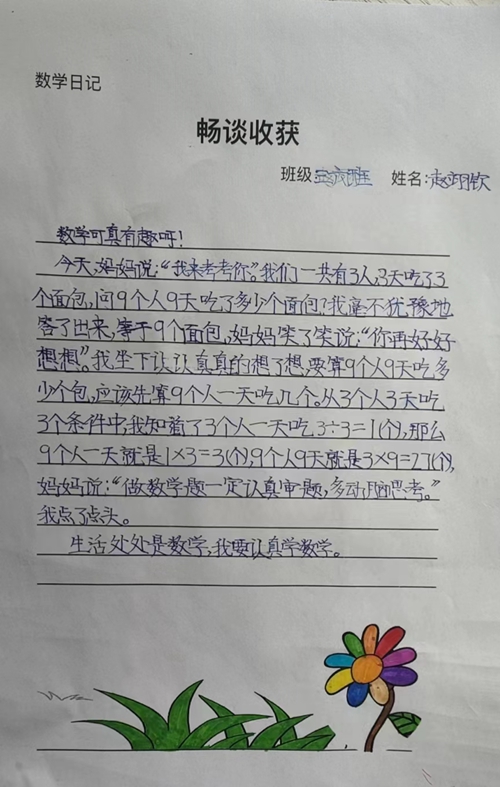 数学日记
畅谈收获
班级 六班 姓名:赵翊钦
数学可真有趣呀!
今天,妈妈说:“我来考考你。”我们一共有3人,3天吃了3
个面包,问9个人9天吃了多少个面包?我毫不犹豫地
答了出来,等于9个面包,妈妈笑了笑说:“你再好好
想想”。我坐下认认真真的想了想,要算9个人9天吃多
少个包,应该先算9个人一天吃几个。从3个人3天吃
3个条件中,我知道了3个人一天吃3÷3=1(个),那么
9个人一天就是1×3=3(个),9个人9天就是3×9=27(个),
妈妈说:“做数学题一定认真审题,多动脑思考。”
我点了点头。
生活处处是数学,我要认真学数学。